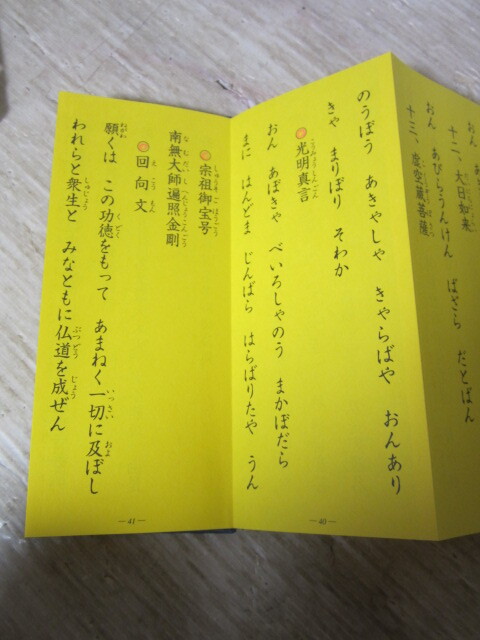 十二、大日如来
おん　あびらうんけん　ばざら　だとばん
十三、虚空蔵菩薩
のうぼう　あきゃしゃ　きゃらばや　おんあり
きゃ　まりぼり　そわか
光明真言
おん　あぼきゃ　べいろしゃのう　まかぼだら
まに　はんどま　じんばら　はらばりたや　うん
― 40 ―
宗祖御宝号
南無大師遍照金剛
回向文
願くは　この功徳をもって　あまねく一切に及ぼし
われらと衆生と　みなともに仏道を成ぜん
― 41 ―